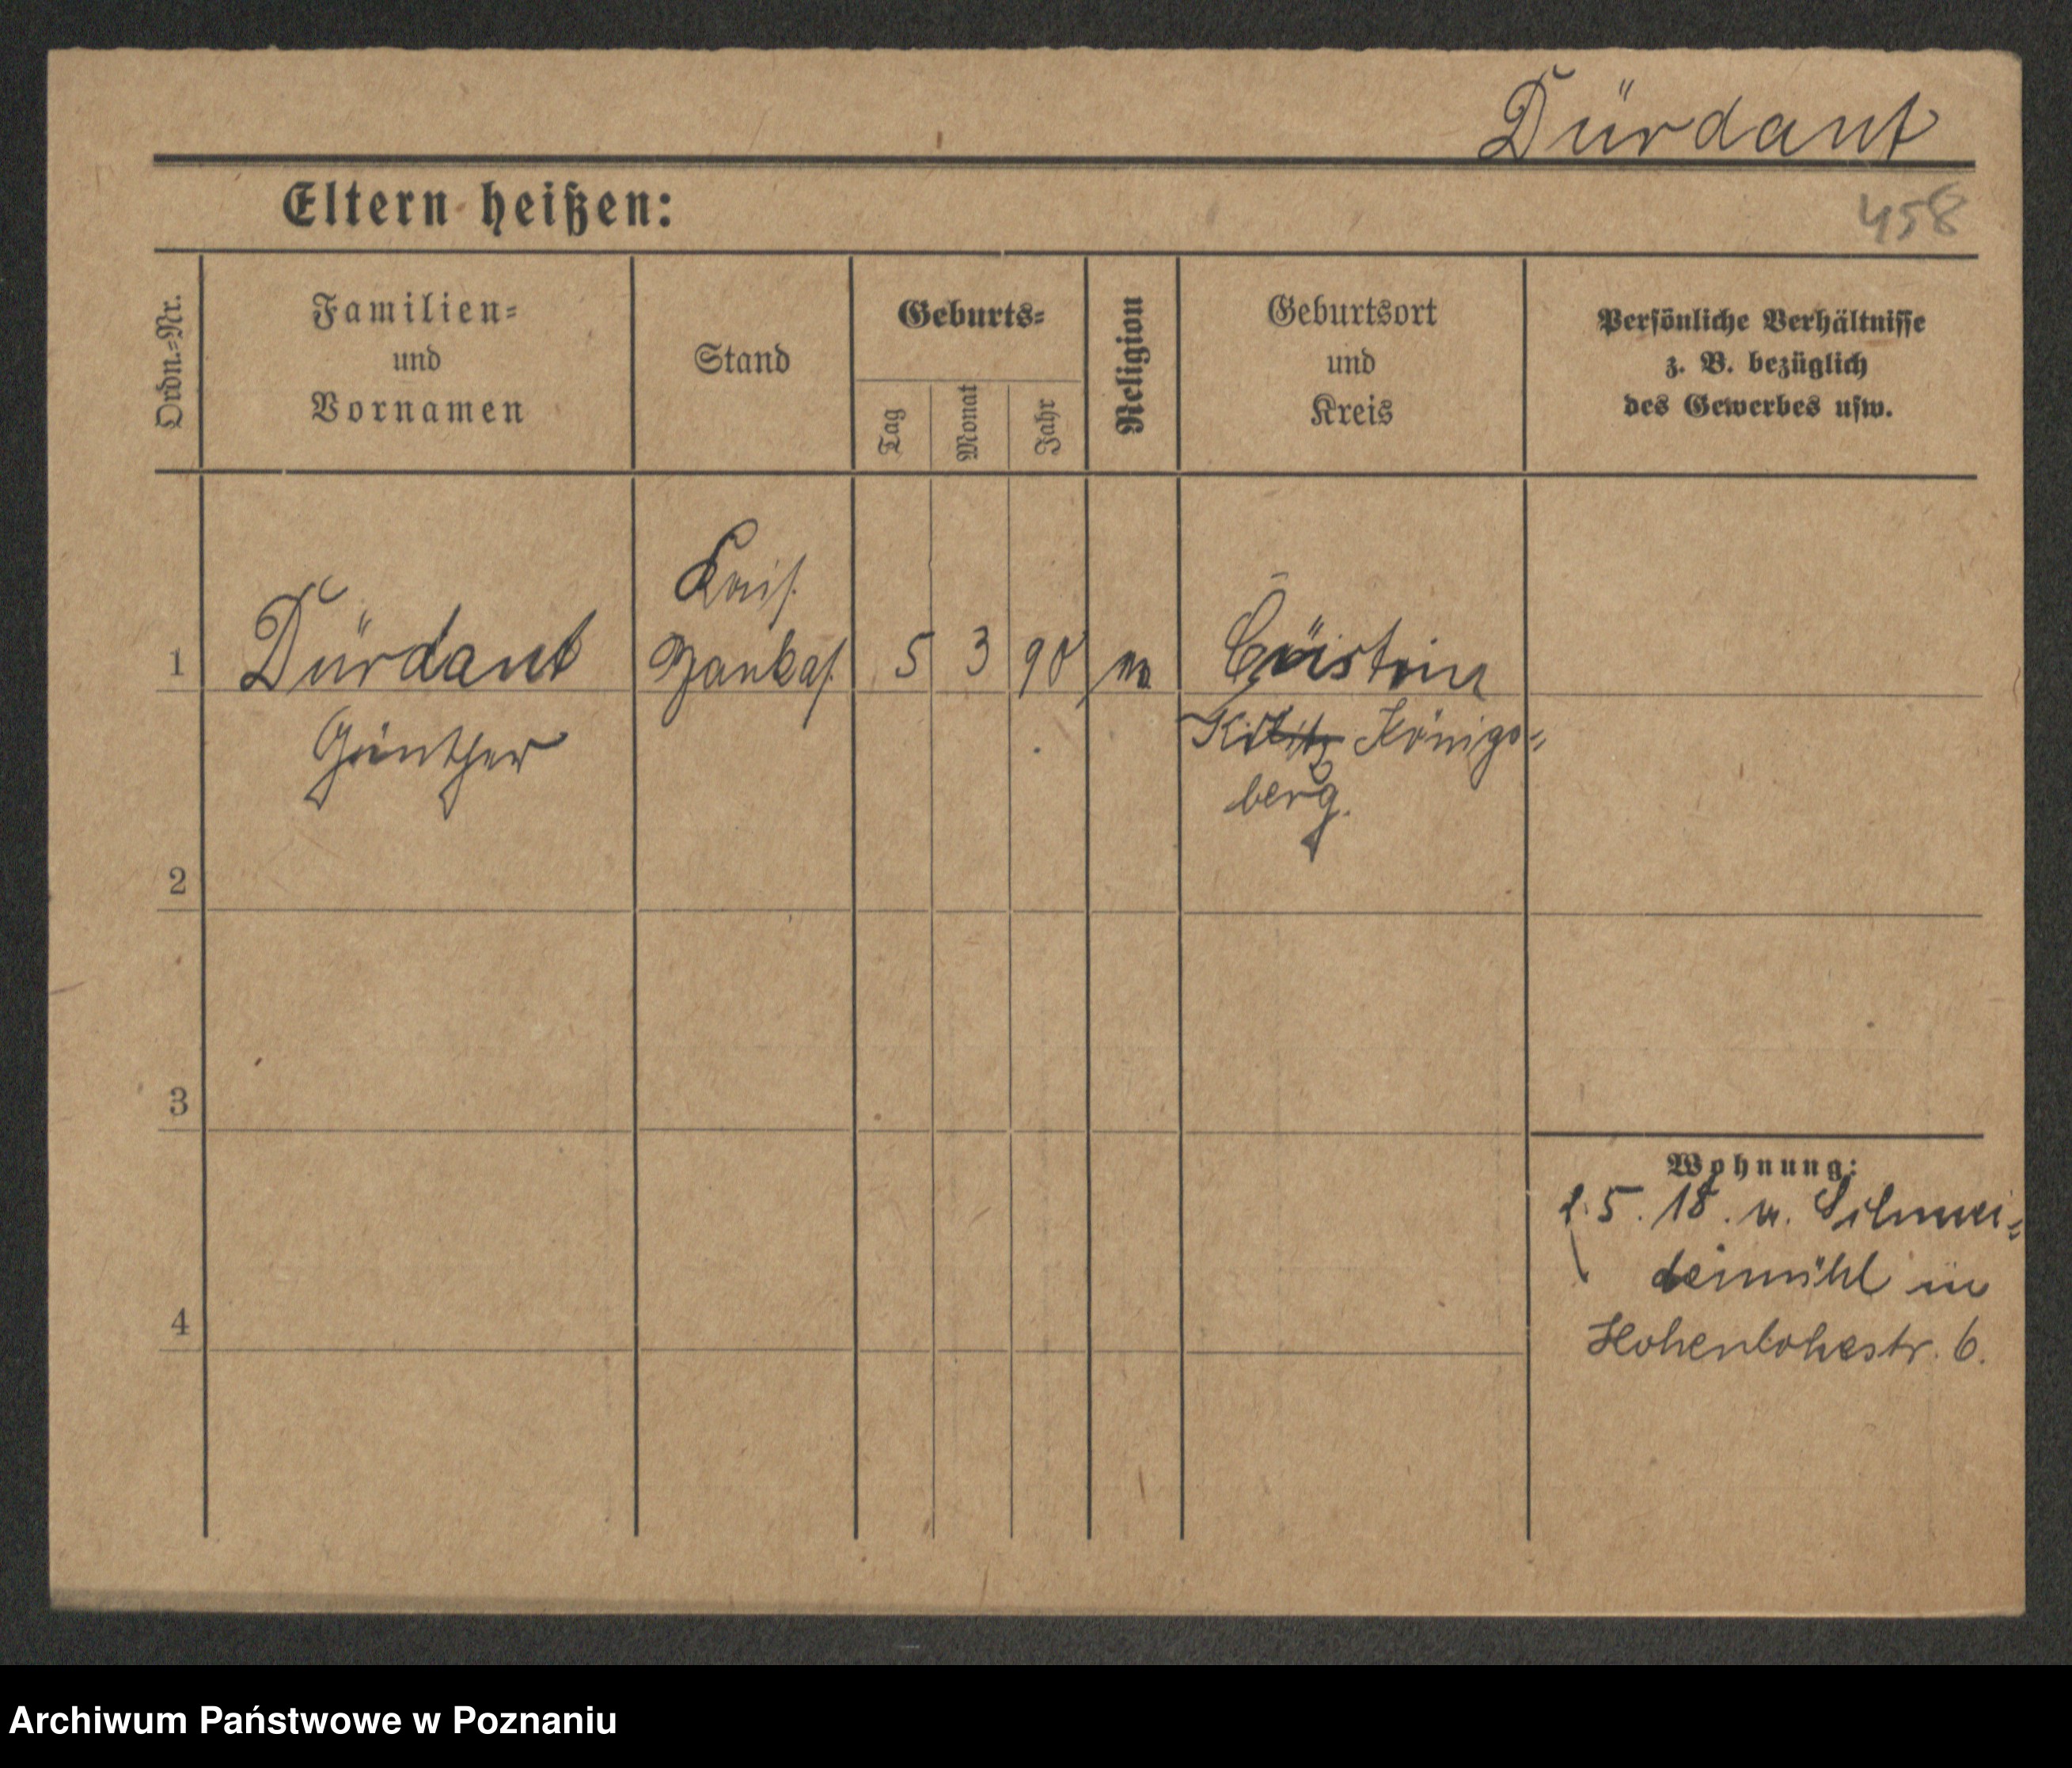 Dürdant
Eltern heißen:
458
Ordn.-Nr.
Familien-
und
Vornamen
Stand
Geburts-
Tag
Monat
Jahr
Religion
Geburtsort
und
Kreis
Persönliche Verhältnisse
z. B. bezüglich
des Gewerbes usw.
1
Dürdant
Günther
Kais.
Bankas.
5
3
90
Cüstrin
Königs-
berg.
2
3
4
Wohnung:
2.5.18. v. Schnei-
demühl in
Hohenlohestr. 6.
Archiwum Państwowe w Poznaniu